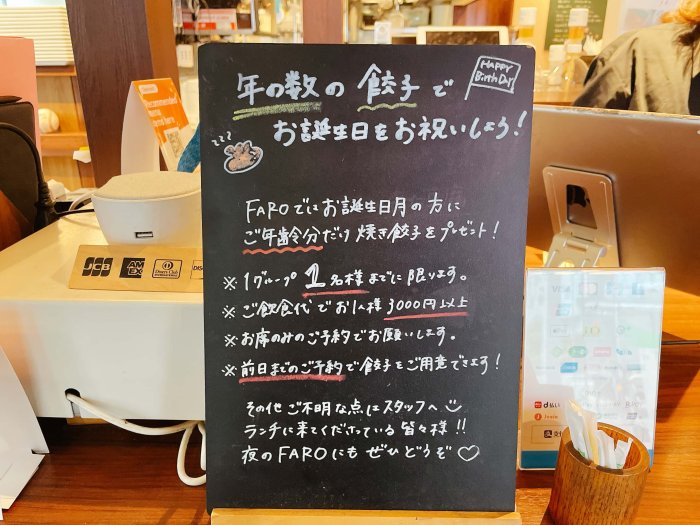 年の数の餃子で
HAPPY
BirthDay
お誕生日をお祝いしよう!
zzz
FAROではお誕生日月の方に
ご年齢分だけ焼き餃子をプレゼント!
※1グループ1名様までに限ります。
※ご飲食代でお1人様3000円以上
※お席のみのご予約でお願いします。
※前日までのご予約で餃子をご用意できます!
その他ご不明な点はスタッフへ
ランチに来てくださっている皆々様!!
夜のFAROにもぜひどうぞ♡
JCB
AMEX
Diners Club
INTERNATIONAL
DISC
VISA
d払い